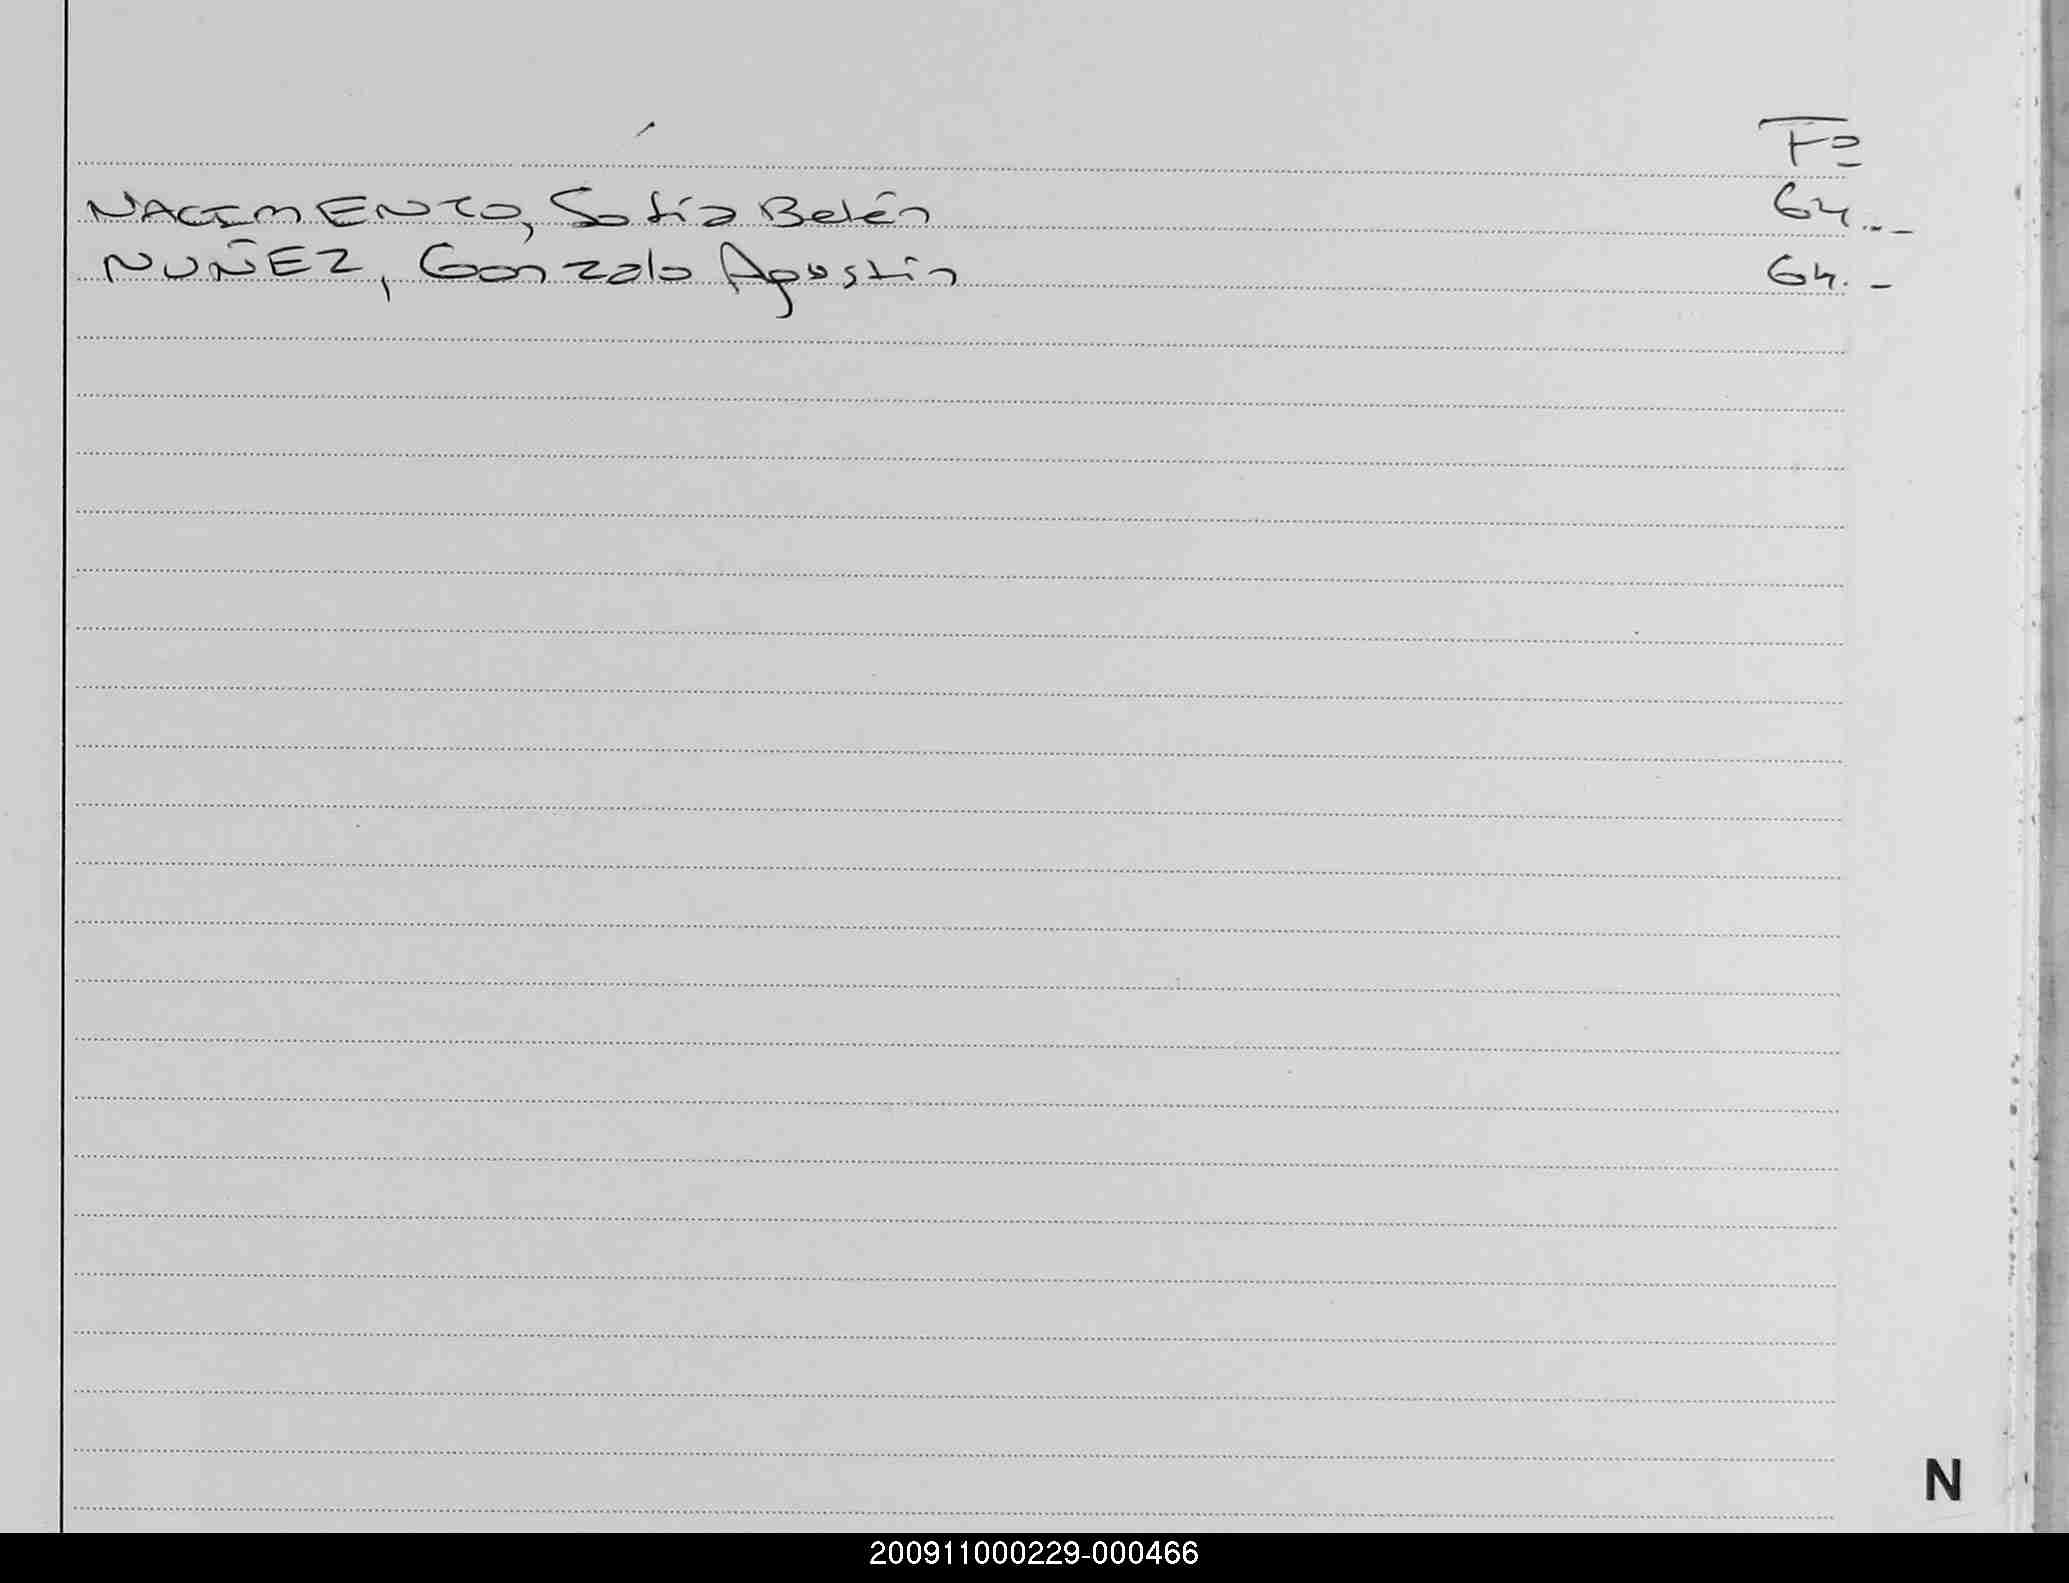 Fº
NACIMENTO, Sofía Belén 64.--
NUÑEZ, Gonzalo Agustín 64.-
N
200911000229-000466